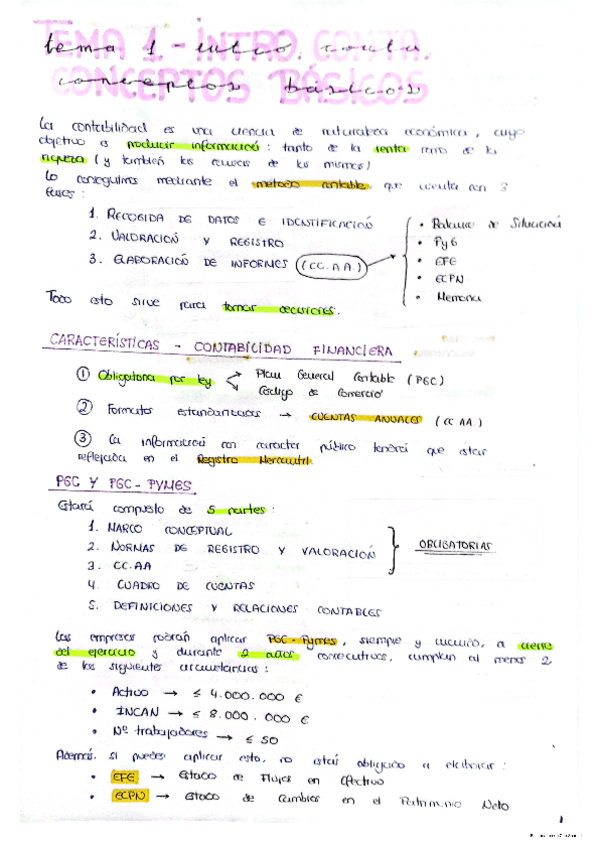 TEMA 1 - INTRO. CONTA.
CONCEPTOS BÁSICOS
tema 1 - intro. conta.
conceptos básicos
La contabilidad es una ciencia de naturaleza económica, cuyo
objetivo es producir información: tanto de la renta como de la
riqueza (y también las causas de las mismas)
Lo conseguimos mediante el método contable, que cuenta con 3
fases:
1. RECOGIDA DE DATOS E IDENTIFICACIÓN
2. VALORACIÓN Y REGISTRO
3. ELABORACIÓN DE INFORMES (CC.AA.)
• Balance de Situación
• PyG
• EFE
• ECPN
• Memoria
Todo esto sirve para tomar decisiones.
CARACTERÍSTICAS - CONTABILIDAD FINANCIERA
① Obligatoria por ley < Plan General Contable (PGC)
Código de Comercio
② Formatos estandarizados → CUENTAS ANUALES (CC AA.)
③ La información con carácter público tendrá que estar
reflejada en el Registro Mercantil.
PGC Y PGC-PYMES
Estará compuesto de 5 partes:
1. MARCO CONCEPTUAL
2. NORMAS DE REGISTRO Y VALORACIÓN
3. CC.AA
OBLIGATORIAS
4. CUADRO DE CUENTAS
5. DEFINICIONES Y RELACIONES CONTABLES
Las empresas podrán aplicar PGC-Pymes, siempre y cuando, a cierre
del ejercicio y durante 2 años consecutivos, cumplan al menos 2
de las siguientes circunstancias:
• Activo → ≤ 4.000.000 €
• INCAN → ≤ 8.000.000 €
• Nº trabajadores → ≤ 50
Además, si puedes aplicar esto, no estás obligado a elaborar:
• EFE → Estado de Flujos en Efectivo
• ECPN → Estado de Cambios en el Patrimonio Neto
1